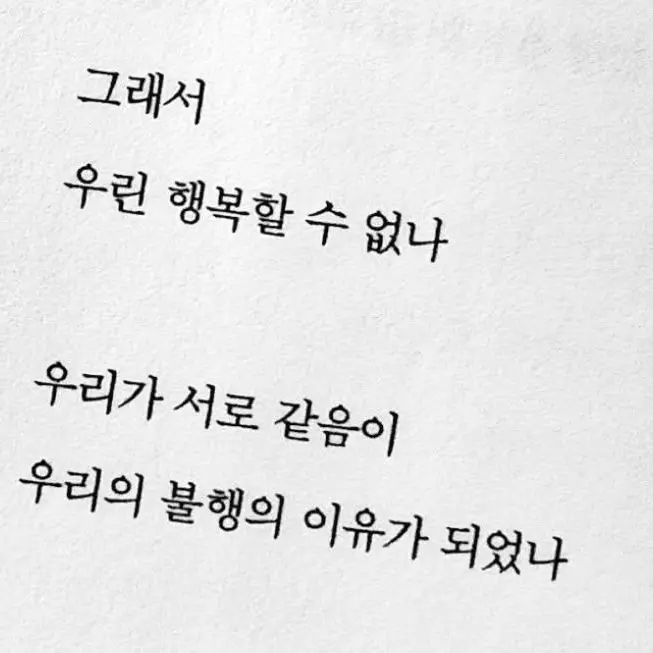 그래서
우린 행복할 수 없나
우리가 서로 같음이
우리의 불행의 이유가 되었나